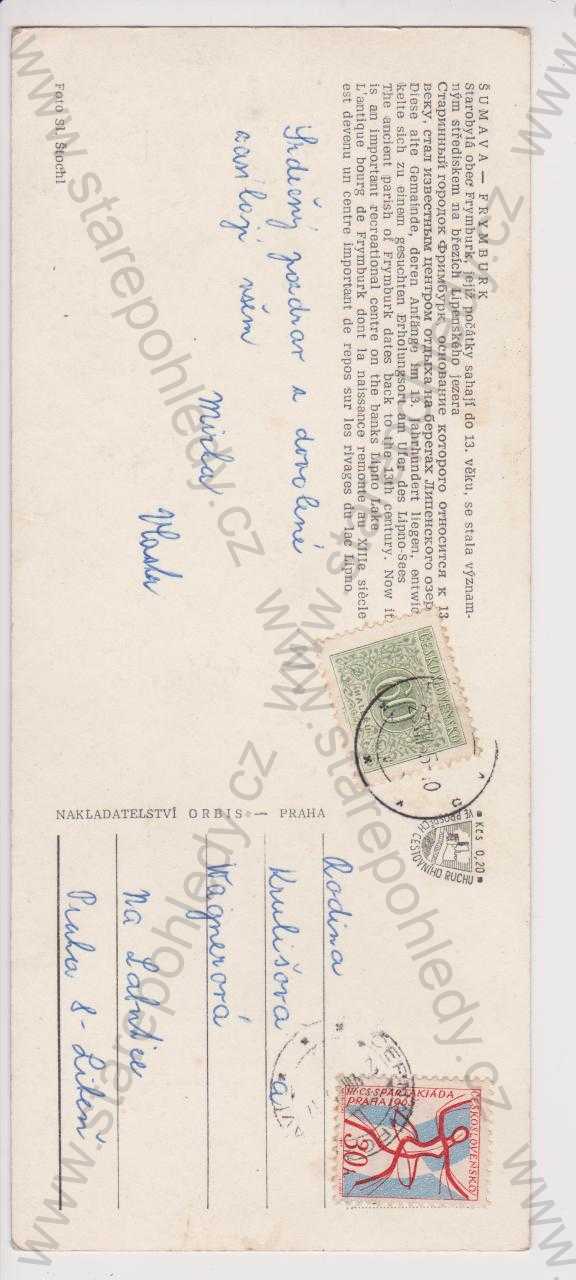 ŠUMAVA — FRYMBURK
Starobylá obec Frymburk, jejíž počátky sahají do 13. věku, se stala význam-
ným střediskem na březích Lipenského jezera
Старинный городок Фримбурк, основание которого относится к 13
веку, стал известным центром отдыха на берегах Липенского озер
Diese alte Gemainde, deren Anfänge im 13. Jahrhundert liegen, entwic
kelte sich zu einem gesuchten Erholungsort am Ufer des Lipno-Sees
The ancient parish of Frymburk dates back to the 13th century. Now it
is an important recreational centre on the banks Lipno Lake
L'antique bourg de Frymburk dont la naissance remonte au XIIIe siècle
est devenu un centre important de repos sur les rivages du lac Lipno
Srdečný pozdrav s dovolené
všem
Mirka
Vlasta
Foto Sl. Štochl
NAKLADATELSTVÍ ORBIS — PRAHA
Kčs 0,20
VE PROSPĚCH
CESTOVNÍHO RUCHU
ČESKOSLOVENSKO
60
ČESKOSLOVENSKO
III. CS. SPARTAKIÁDA
PRAHA 1965
30
Rodina
Krulišová a
Wagnerová
Na Labuťce
Praha 8 - Libeň
www.starepohledy.cz